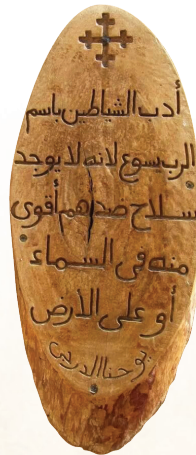 أدب الشياطين باسم
الرب يسوع لانه لا يوجد
سلاح ضدهم أقوى
منه فى السماء
أو على الأرض
يوحنا الدرجى